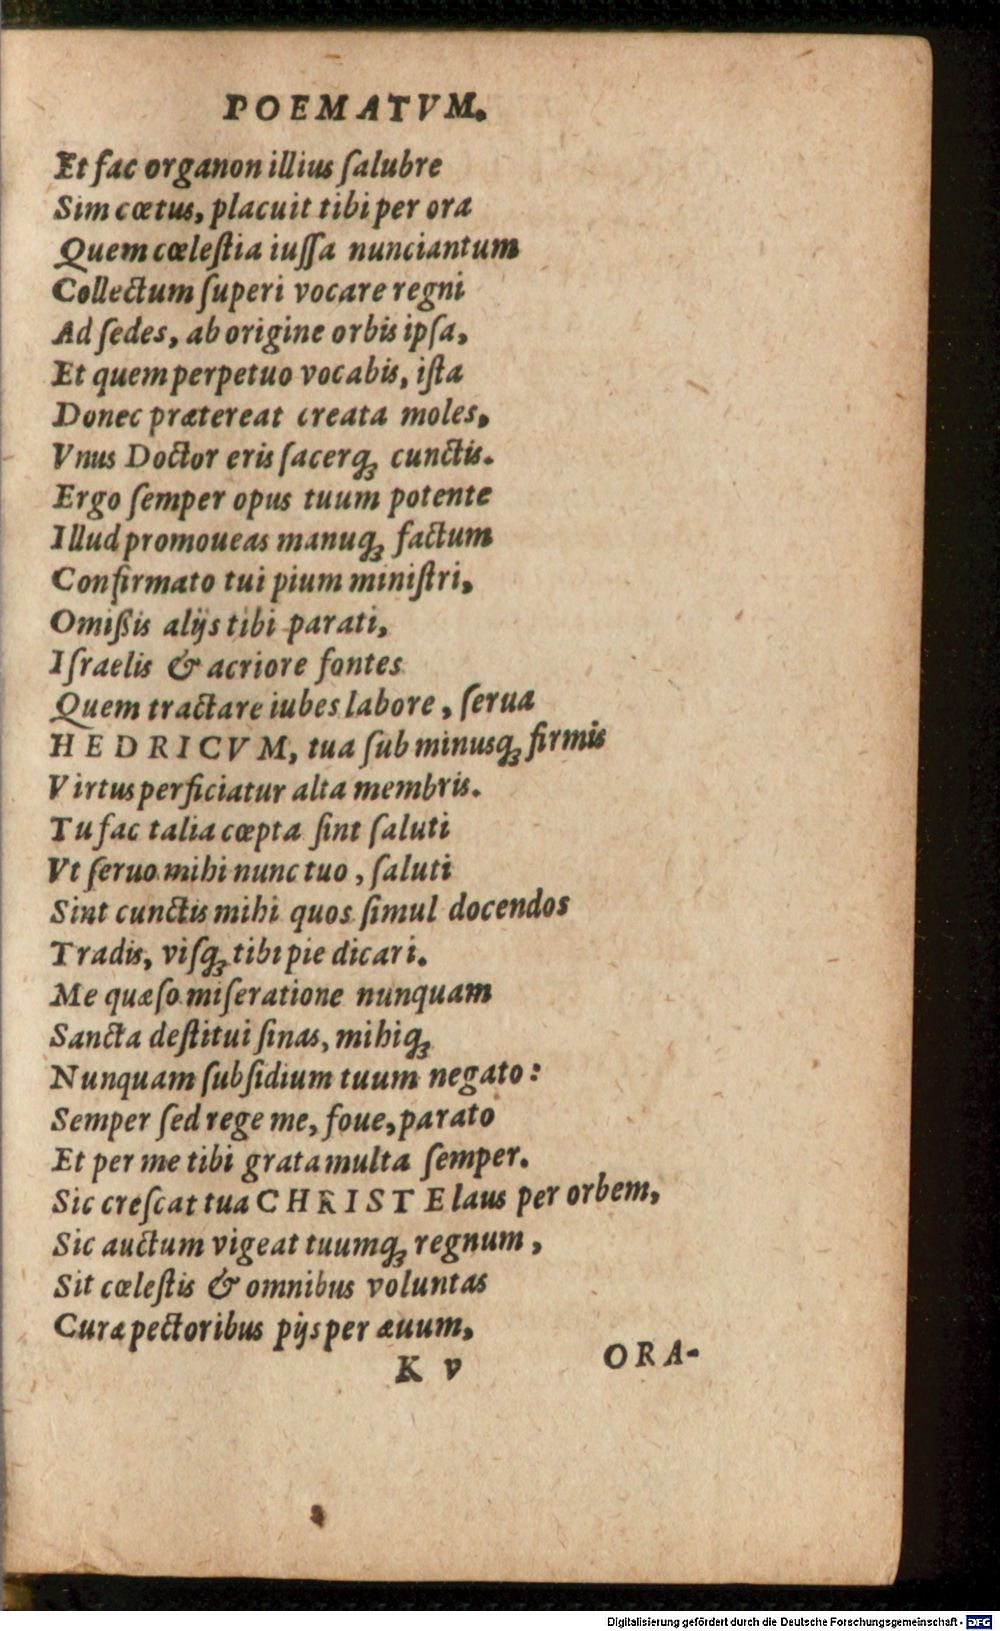 POEMATVM.
Et fac organon illius ſalubre
Sim cœtus, placuit tibi per ora
Quem cœleſtia iuſſa nunciantum
Collectum ſuperi vocare regni
Ad ſedes, ab origine orbis ipſa,
Et quem perpetuo vocabis, iſta
Donec prætereat creata moles,
Vnus Doctor eris ſacerq́ꝫ cunctis.
Ergo ſemper opus tuum potente
Illud promoueas manuq́ꝫ factum
Confirmato tui pium miniſtri,
Omißis alijs tibi parati,
Iſraelis & acriore fontes
Quem tractare iubes labore, ſerua
HEDRICVM, tua ſub minusq́ꝫ firmis
Virtus perficiatur alta membris.
Tu fac talia cœpta ſint ſaluti
Vt ſeruo mihi nunc tuo, ſaluti
Sint cunctis mihi quos ſimul docendos
Tradis, viſq́ꝫ tibi pie dicari.
Me quæſo miſeratione nunquam
Sancta deſtitui ſinas, mihiq́ꝫ
Nunquam ſubſidium tuum negato:
Semper ſed rege me, foue, parato
Et per me tibi grata multa ſemper.
Sic creſcat tua CHRISTE laus per orbem,
Sic auctum vigeat tuumq́ꝫ regnum,
Sit cœleſtis & omnibus voluntas
Curæ pectoribus pijs per æuum,
K v ORA-
Digitalisierung gefördert durch die Deutsche Forschungsgemeinschaft - DFG